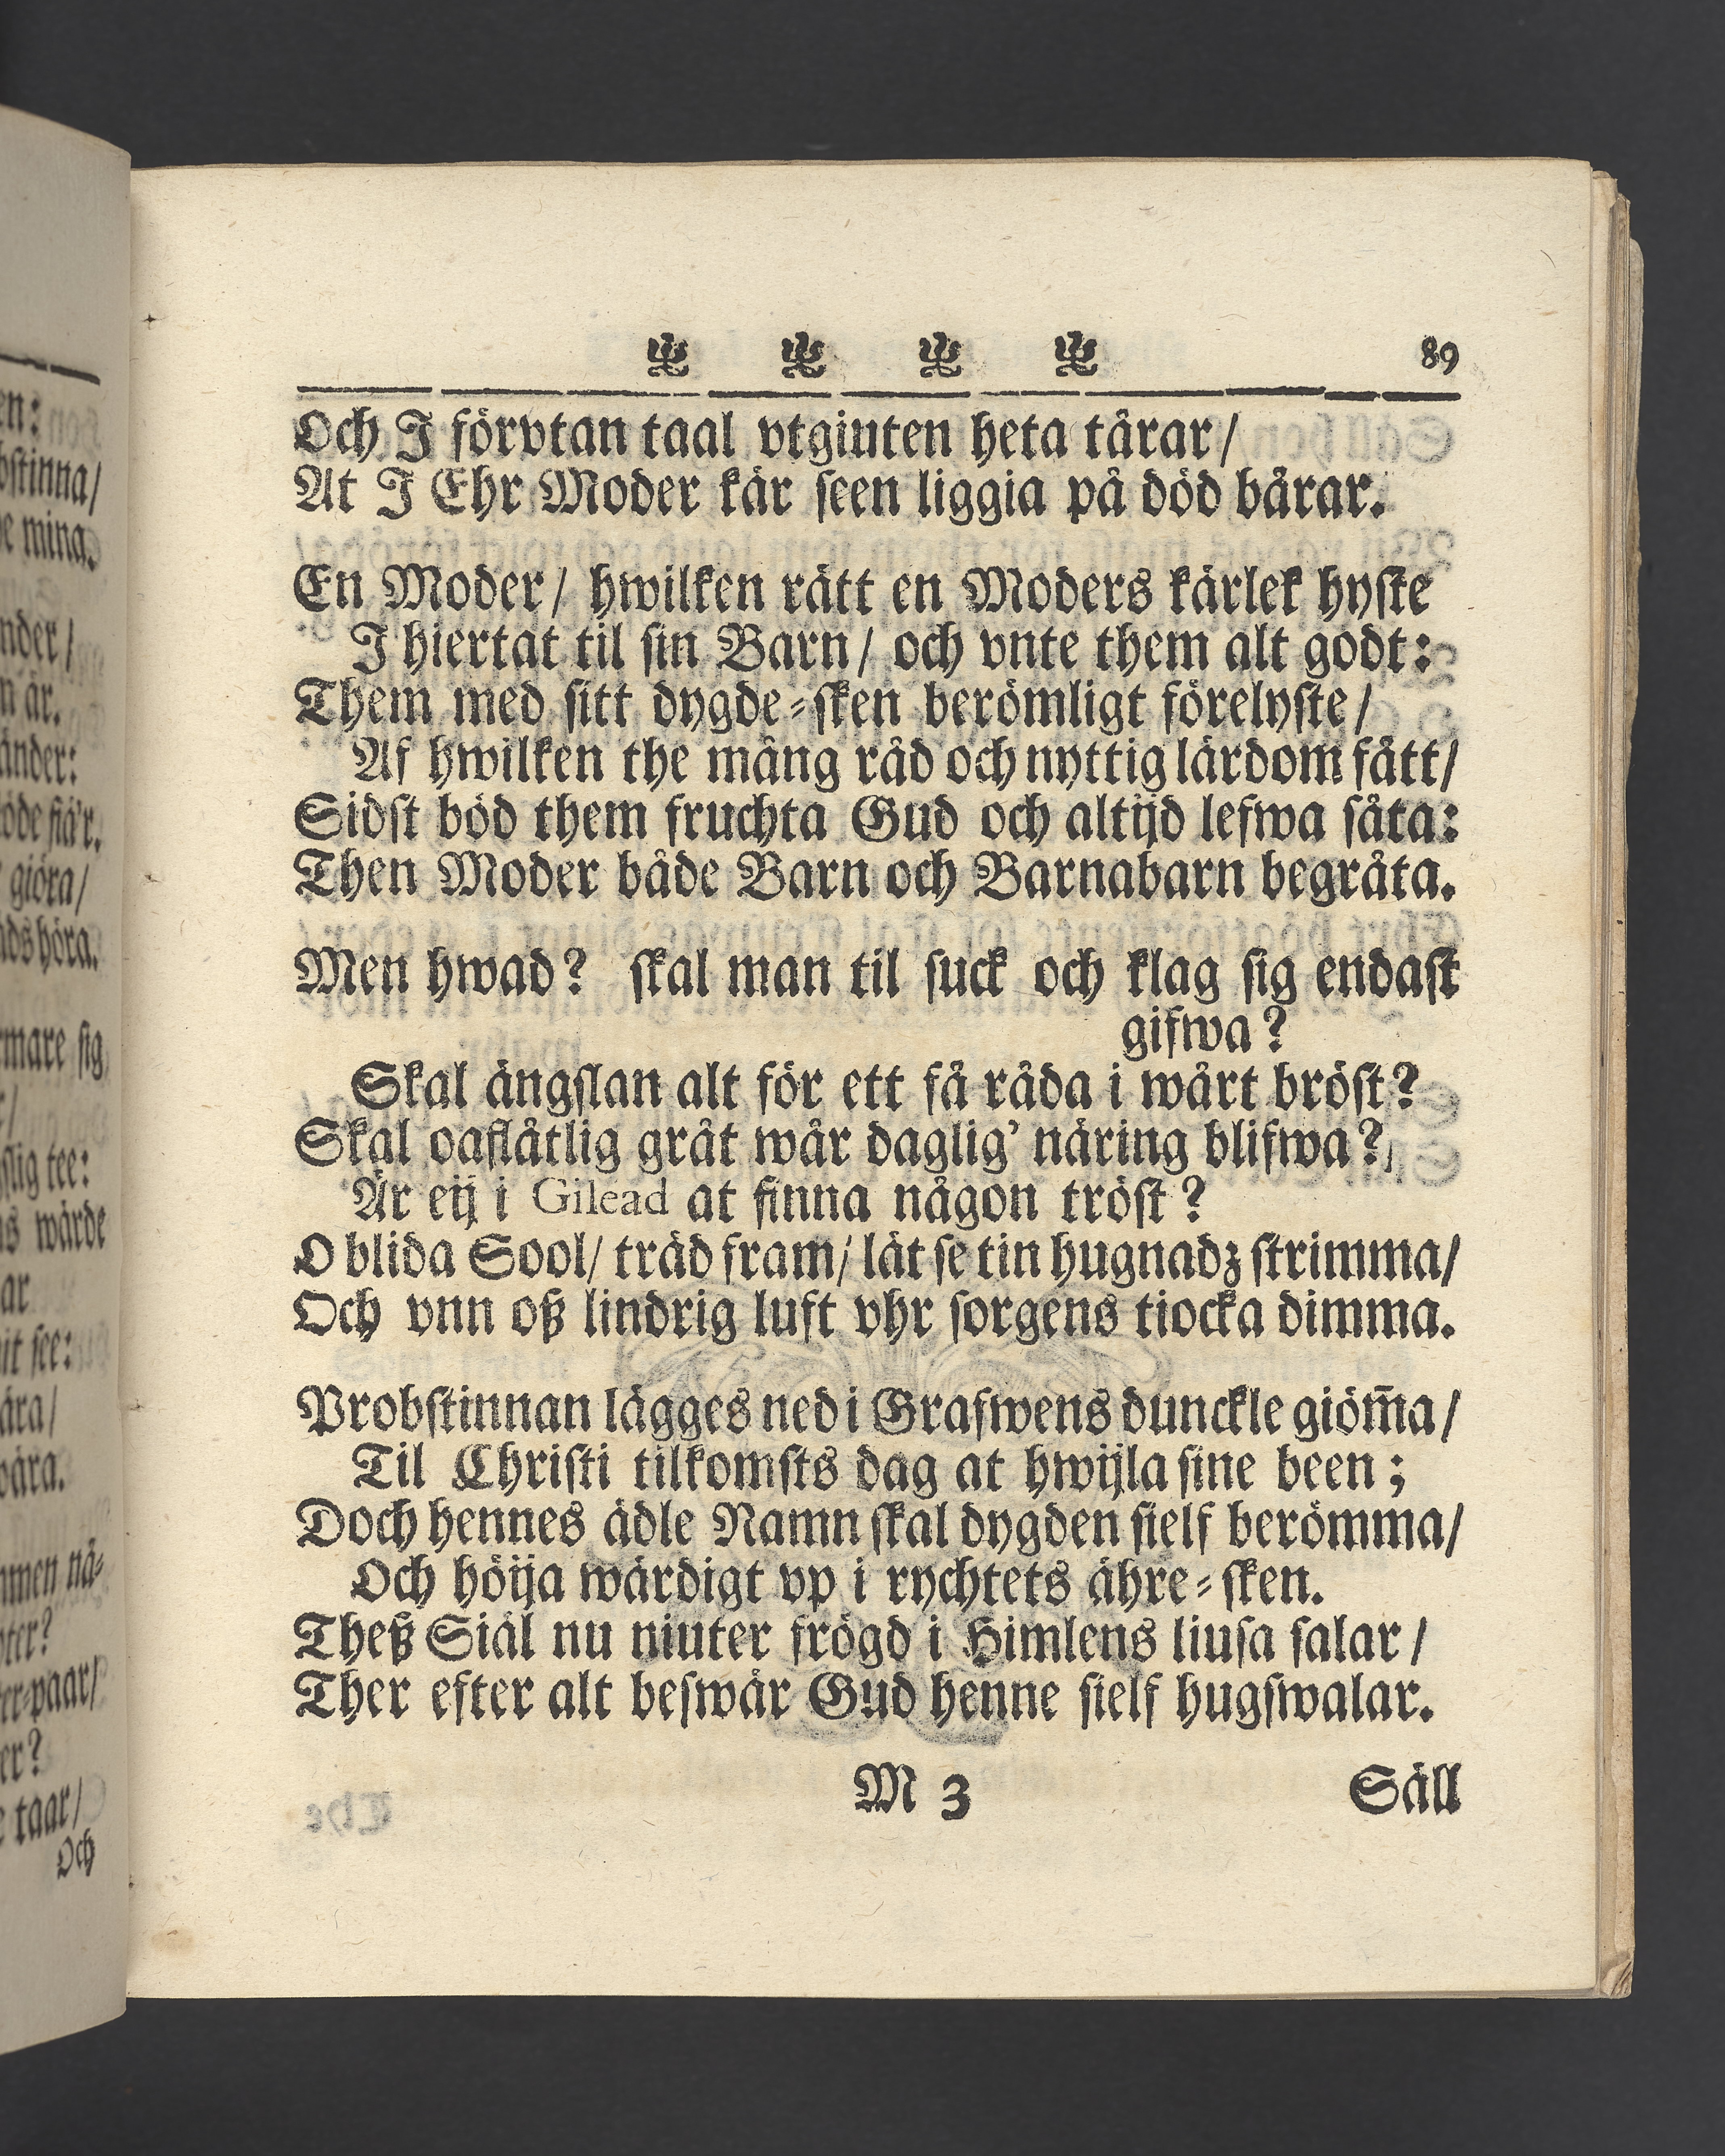 en:
bstinna/
de mina.
nder/
n är.
änder:
öde fiä'r.
giöra/
ads höra.
rmare sig
slig tee:
ns wärde
ar
it see:
ära/
wära.
mmen nä-
pter?
ter-paar/
er?
e taar/
Och
89
Och J förvtan taal vtgiuten heta tårar/
At J Ehr Moder kär seen liggia på död bårar.
En Moder/ hwilken rätt en Moders kärlek hyste
J hiertat til sin Barn/ och vnte them alt godt:
Them med sitt dygde-sken berömligt förelyste/
Af hwilken the mång råd och nyttig lärdom fått/
Sidst böd them fruchta Gud och altijd lefwa såta:
Then Moder både Barn och Barnabarn begråta.
Men hwad? skal man til suck och klag sig endast
gifwa?
Skal ängslan alt för ett få råda i wårt bröst?
Skal oaflåtlig gråt wår daglig' näring blifwa?
Är eij i Gilead at finna någon tröst?
O blida Sool/ träd fram/ låt se tin hugnadz strimma/
Och vnn oß lindrig luft vhr sorgens tiocka dimma.
Probstinnan lägges ned i Grafwens dunckle giöm̃a/
Til Christi tilkomsts dag at hwijla sine been;
Doch hennes ädle Namn skal dygden sielf berömma/
Och höija wärdigt vp i rychtets ähre-sken.
Theß Siäl nu niuter frögd i Himlens liusa salar/
Ther efter alt beswär Gud henne sielf hugswalar.
M 3
Säll